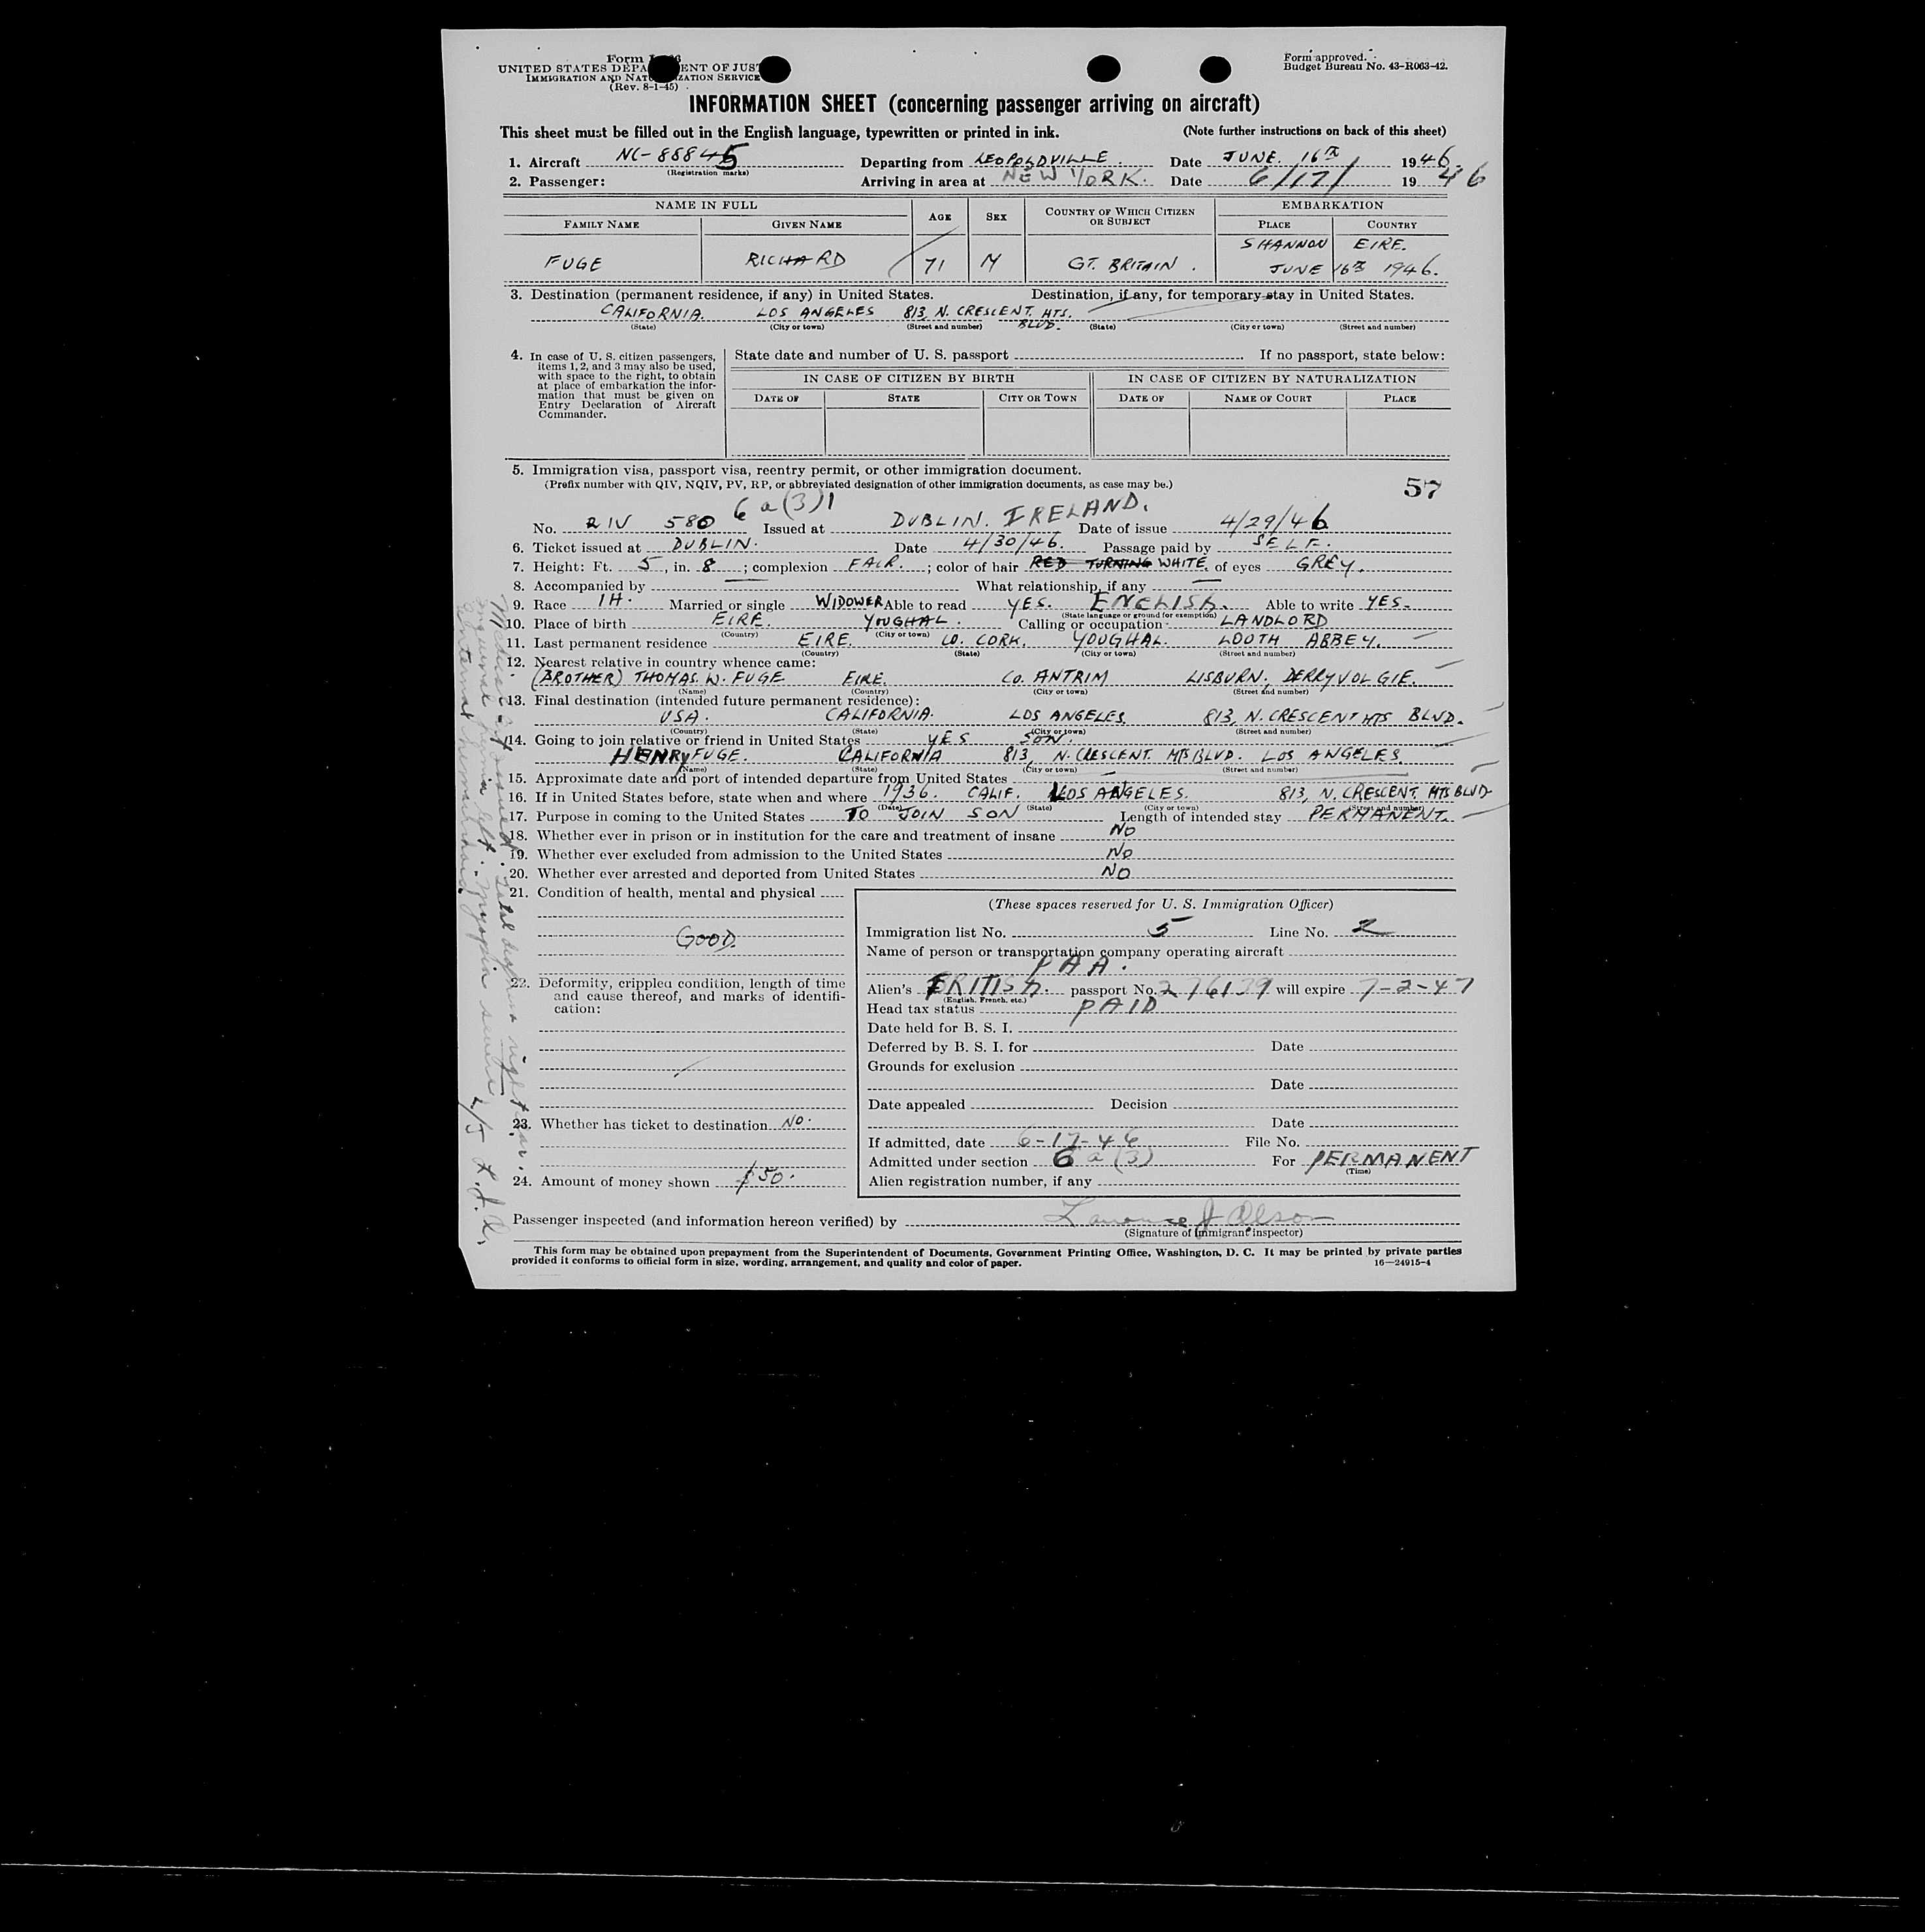 Form I-
UNITED STATES DEPA ENT OF JUST
IMMIGRATION AND NAT ZATION SERVICE
(Rev. 8-1-45)
Form approved.
Budget Bureau No. 43-R063-42.
INFORMATION SHEET (concerning passenger arriving on aircraft)
This sheet must be filled out in the English language, typewritten or printed in ink. (Note further instructions on back of this sheet)
1. Aircraft NC-88845 Departing from LEOPOLDVILLE. Date JUNE. 16TH 1946.
(Registration marks)
2. Passenger: Arriving in area at NEW YORK. Date 6/17/ 1946
NAME IN FULL AGE SEX COUNTRY OF WHICH CITIZEN OR SUBJECT EMBARKATION
FAMILY NAME GIVEN NAME PLACE COUNTRY
SHANNON EIRE.
FUGE RICHARD 71 M GT. BRITAIN. JUNE 16TH 1946.
3. Destination (permanent residence, if any) in United States. Destination, if any, for temporary stay in United States.
CALIFORNIA. LOS ANGELES 813, N. CRESCENT. HTS. BLVD.
(State) (City or town) (Street and number) (State) (City or town) (Street and number)
4. In case of U. S. citizen passengers, items 1, 2, and 3 may also be used, with space to the right, to obtain at place of embarkation the information that must be given on Entry Declaration of Aircraft Commander.
State date and number of U. S. passport If no passport, state below:
IN CASE OF CITIZEN BY BIRTH IN CASE OF CITIZEN BY NATURALIZATION
DATE OF STATE CITY OR TOWN DATE OF NAME OF COURT PLACE
5. Immigration visa, passport visa, reentry permit, or other immigration document.
(Prefix number with QIV, NQIV, PV, RP, or abbreviated designation of other immigration documents, as case may be.)
57
6a(3)1
No. QIV 580 Issued at DUBLIN. IRELAND. Date of issue 4/29/46
6. Ticket issued at DUBLIN. Date 4/30/46. Passage paid by SELF.
7. Height: Ft. 5, in. 8; complexion FAIR.; color of hair RED TURNING WHITE, of eyes GREY.
8. Accompanied by What relationship, if any
9. Race IH. Married or single WIDOWER Able to read YES. ENGLISH. Able to write YES.
(State language or ground for exemption)
10. Place of birth EIRE. YOUGHAL. Calling or occupation LANDLORD
(Country) (City or town)
11. Last permanent residence EIRE. CO. CORK. YOUGHAL. LOUTH ABBEY.
(Country) (State) (City or town) (Street and number)
12. Nearest relative in country whence came:
(BROTHER) THOMAS. W. FUGE. EIRE. CO. ANTRIM LISBURN, DERRYVOLGIE.
(Name) (Country) (City or town) (Street and number)
13. Final destination (intended future permanent residence):
USA. CALIFORNIA. LOS ANGELES 813, N. CRESCENT HTS BLVD.
(Country) (State) (City or town) (Street and number)
14. Going to join relative or friend in United States YES SON.
HENRY FUGE. CALIFORNIA 813, N. CRESCENT. HTS BLVD. LOS ANGELES.
(Name) (State) (City or town) (Street and number)
15. Approximate date and port of intended departure from United States
16. If in United States before, state when and where 1936. CALIF. LOS ANGELES. 813, N. CRESCENT. HTS BLVD
(Date) (State) (City or town) (Street and number)
17. Purpose in coming to the United States TO JOIN SON Length of intended stay PERMANENT.
18. Whether ever in prison or in institution for the care and treatment of insane NO
19. Whether ever excluded from admission to the United States NO
20. Whether ever arrested and deported from United States NO
21. Condition of health, mental and physical
GOOD.
22. Deformity, crippled condition, length of time and cause thereof, and marks of identification:
23. Whether has ticket to destination NO.
24. Amount of money shown $50.
(These spaces reserved for U. S. Immigration Officer)
Immigration list No. 5 Line No. 2
Name of person or transportation company operating aircraft
PAA.
Alien's BRITISH. passport No. 276139 will expire 7-2-47
(English, French, etc.)
Head tax status PAID
Date held for B. S. I.
Deferred by B. S. I. for Date
Grounds for exclusion
Date
Date appealed Decision
Date
If admitted, date 6-17-46 File No.
Admitted under section 6a(3) For PERMANENT
(Time)
Alien registration number, if any
Passenger inspected (and information hereon verified) by Lawrence J Olson
(Signature of Immigrant inspector)
This form may be obtained upon prepayment from the Superintendent of Documents, Government Printing Office, Washington, D. C. It may be printed by private parties
provided it conforms to official form in size, wording, arrangement, and quality and color of paper. 16—24915-4
Medical cert issued. Total deafness right ear.
inguinal hernia lft. myopia severe
internal hemorrhoids L.J.O.